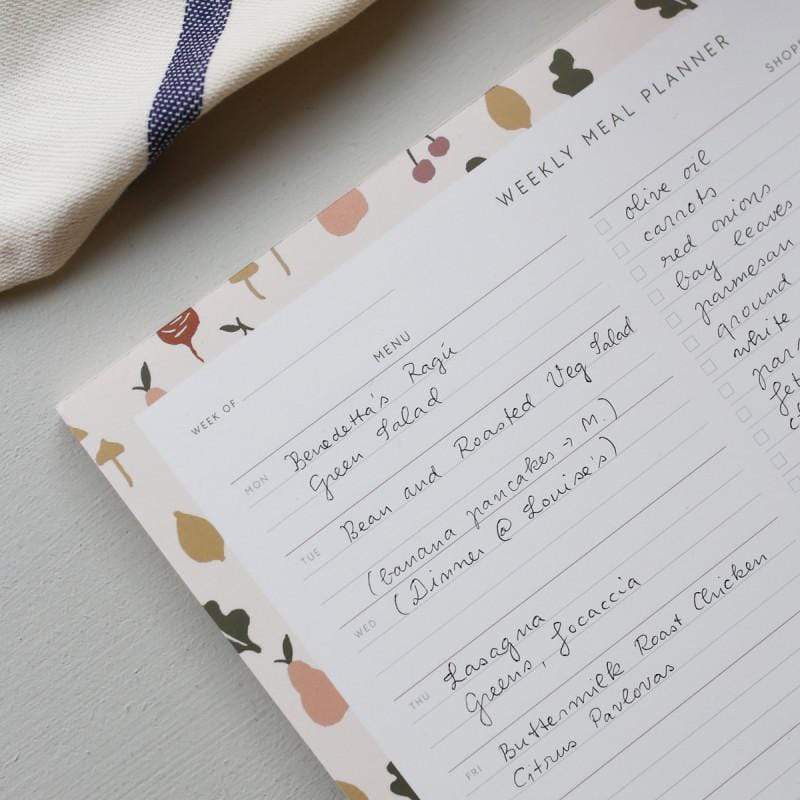 WEEKLY MEAL PLANNER
WEEK OF
MENU
MON Benedetta's Ragú
Green Salad
TUE Bean and Roasted Veg Salad
WED (banana pancakes → M.)
(Dinner @ Louise's)
THU Lasagna
Greens, focaccia
FRI Buttermilk Roast Chicken
Citrus Pavlovas
olive oil
carrots
red onions
bay leaves
parmesan
ground
white